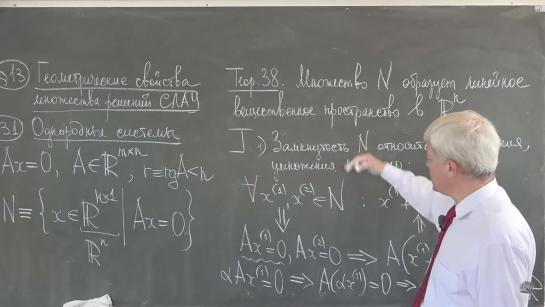 13 Геометрические свойства
множества решений СЛАУ
31 Однородные системы
Ax=0, A∈ℝ^{m×n}, r≡rgA<n
N≡{x∈ℝ^{n×1} | Ax=0}
ℝ^n
Теор.38. Множество N образует линейное
вещественное пространство в ℝ^n
I 1) Замкнутость N
умножения
∀x^{(1)}, x^{(2)}∈N : x^{(1)}
⇓
Ax^{(1)}=0, Ax^{(2)}=0 ⇒ A(x^{(1)}
αAx^{(1)}=0 ⇒ A(αx^{(1)})=0 ⇒